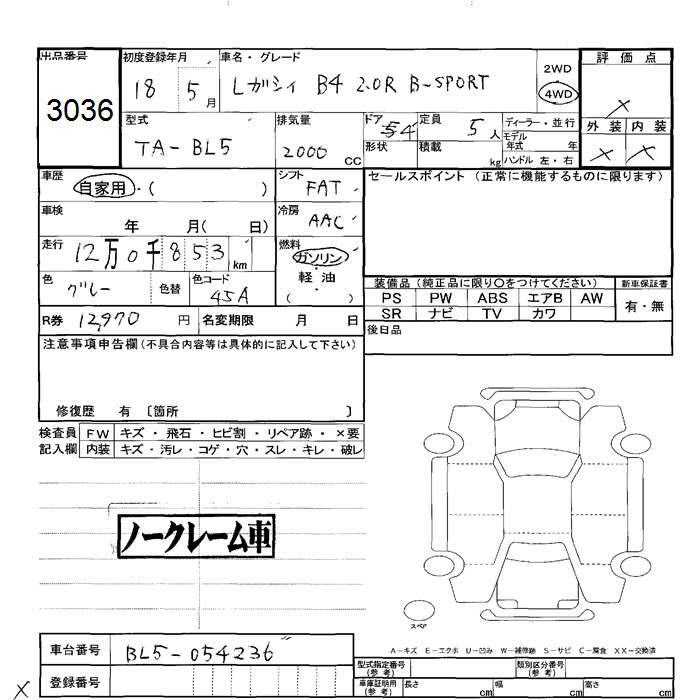 出品番号
3036
初度登録年月
18 5月
車名・グレード
Lガシィ B4 2.0R B-SPORT
2WD
4WD
評価点
×
外装 内装
× ×
型式
TA-BL5
排気量
2000 cc
ドア
54
形状
定員
5人
積載
kg
ディーラー・並行
モデル年式 年
ハンドル 左・右
車歴
自家用・( )
シフト
FAT
セールスポイント (正常に機能するものに限ります)
車検
年 月( 日)
冷房
AAC
走行
12万0千853km
燃料
ガソリン
軽・油
( )
色
グレー
色替
色コード
45A
装備品(純正品に限り〇をつけてください)
新車保証書
PS PW ABS エアB AW
有・無
SR ナビ TV カワ
R券 12,970 円
名変期限 月 日
後日品
注意事項申告欄(不具合内容等は具体的に記入して下さい)
修復歴 有 〔箇所 〕
検査員記入欄
FW キズ・飛石・ヒビ割・リペア跡・×要
内装 キズ・汚レ・コゲ・穴・スレ・キレ・破レ
ノークレーム車
スペア
A-キズ E-エクボ U-凹み W-補修跡 S-サビ C-腐食 XX-交換済
車台番号
BL5-054236
登録番号
×
型式指定番号
(参考)
類別区分番号
(参考)
車庫証明用
(参考)
長さ cm
幅 cm
高さ cm